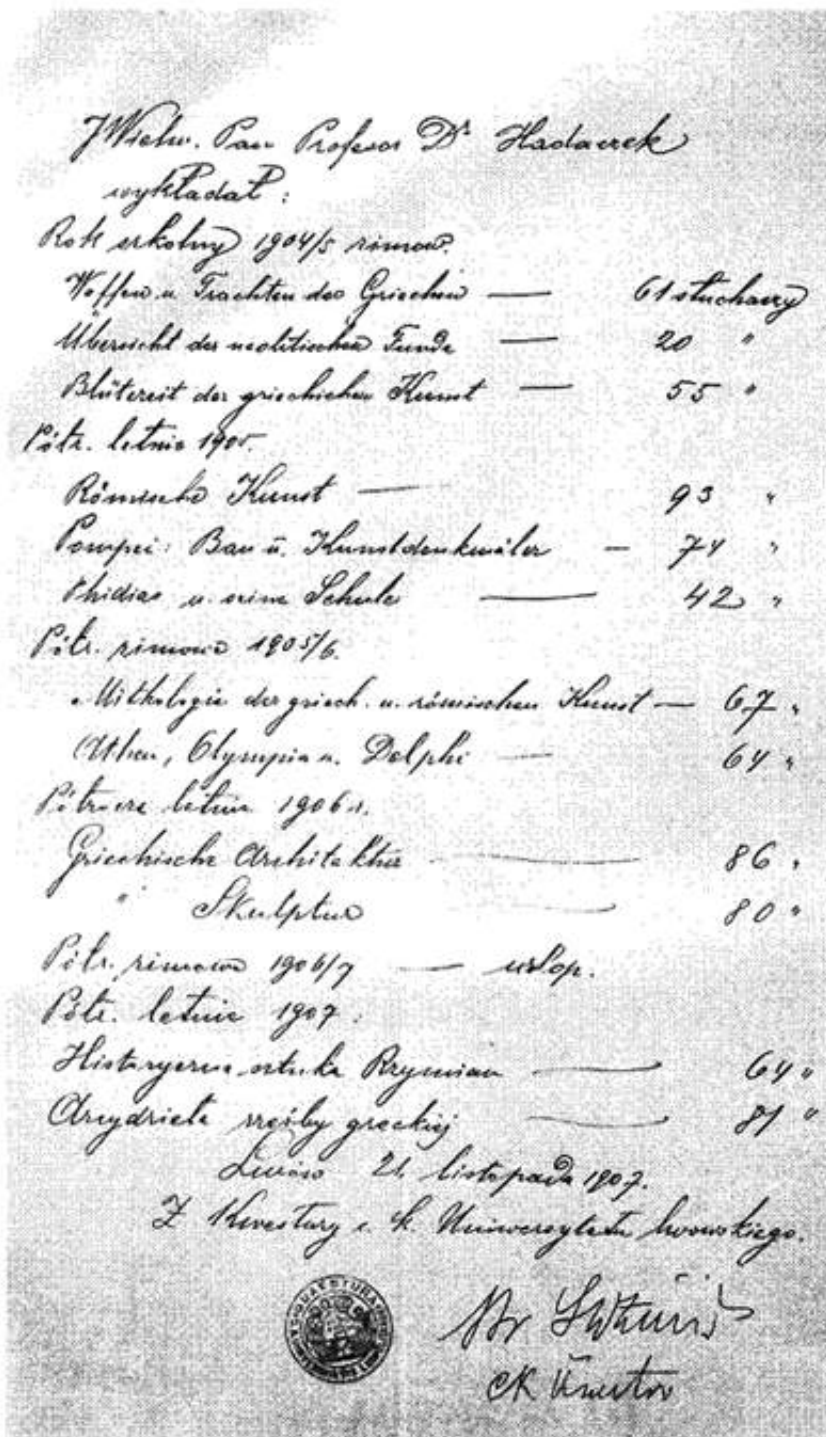 JWielm. Pan Profesor Dr Hadaczek
wykładał:
Rok szkolny 1904/5 zimow.
Waffen u. Trachten der Griechen — 61 słuchaczy
Übersicht der neolitischen Funde — 20 "
Blütezeit der griechichen Kunst — 55 "
Półr. letnie 1905.
Römische Kunst — 93 "
Pompei: Bau u. Kunstdenkmäler — 74 "
Phidias u. seine Schule — 42 "
Półr. zimowe 1905/6.
Mithologie der griech. u. römischen Kunst — 67 "
Athen, Olympia u. Delphi — 64 "
Półrocze letnie 1906 r.
Griechische Architektur — 86 "
" Skulptur — 80 "
Półr. zimowe 1906/7 — urlop.
Półr. letnie 1907.
Historyczna sztuka Rzymian — 64 "
Arcydzieła rzeźby greckiej — 81 "
Lwów 21. listopada 1907.
Z Kwestury c. k. Uniwersytetu lwowskiego.